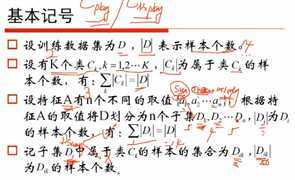 基本记号
设训练数据集为D，|D|表示样本个数
设有K个类Cₖ,k=1,2…K，|Cₖ|为属于类Cₖ的样
本个数，有：∑|Cₖ|=|D|
设特征A有n个不同的取值{a₁,a₂…aₙ}，根据特
征A的取值将D划分为n个子集D₁,D₂…Dₙ，|Dᵢ|为Dᵢ
的样本个数，有：∑|Dᵢ|=|D|
记子集Dᵢ中属于类Cₖ的样本的集合为Dᵢₖ，|Dᵢₖ|
为Dᵢₖ的样本个数